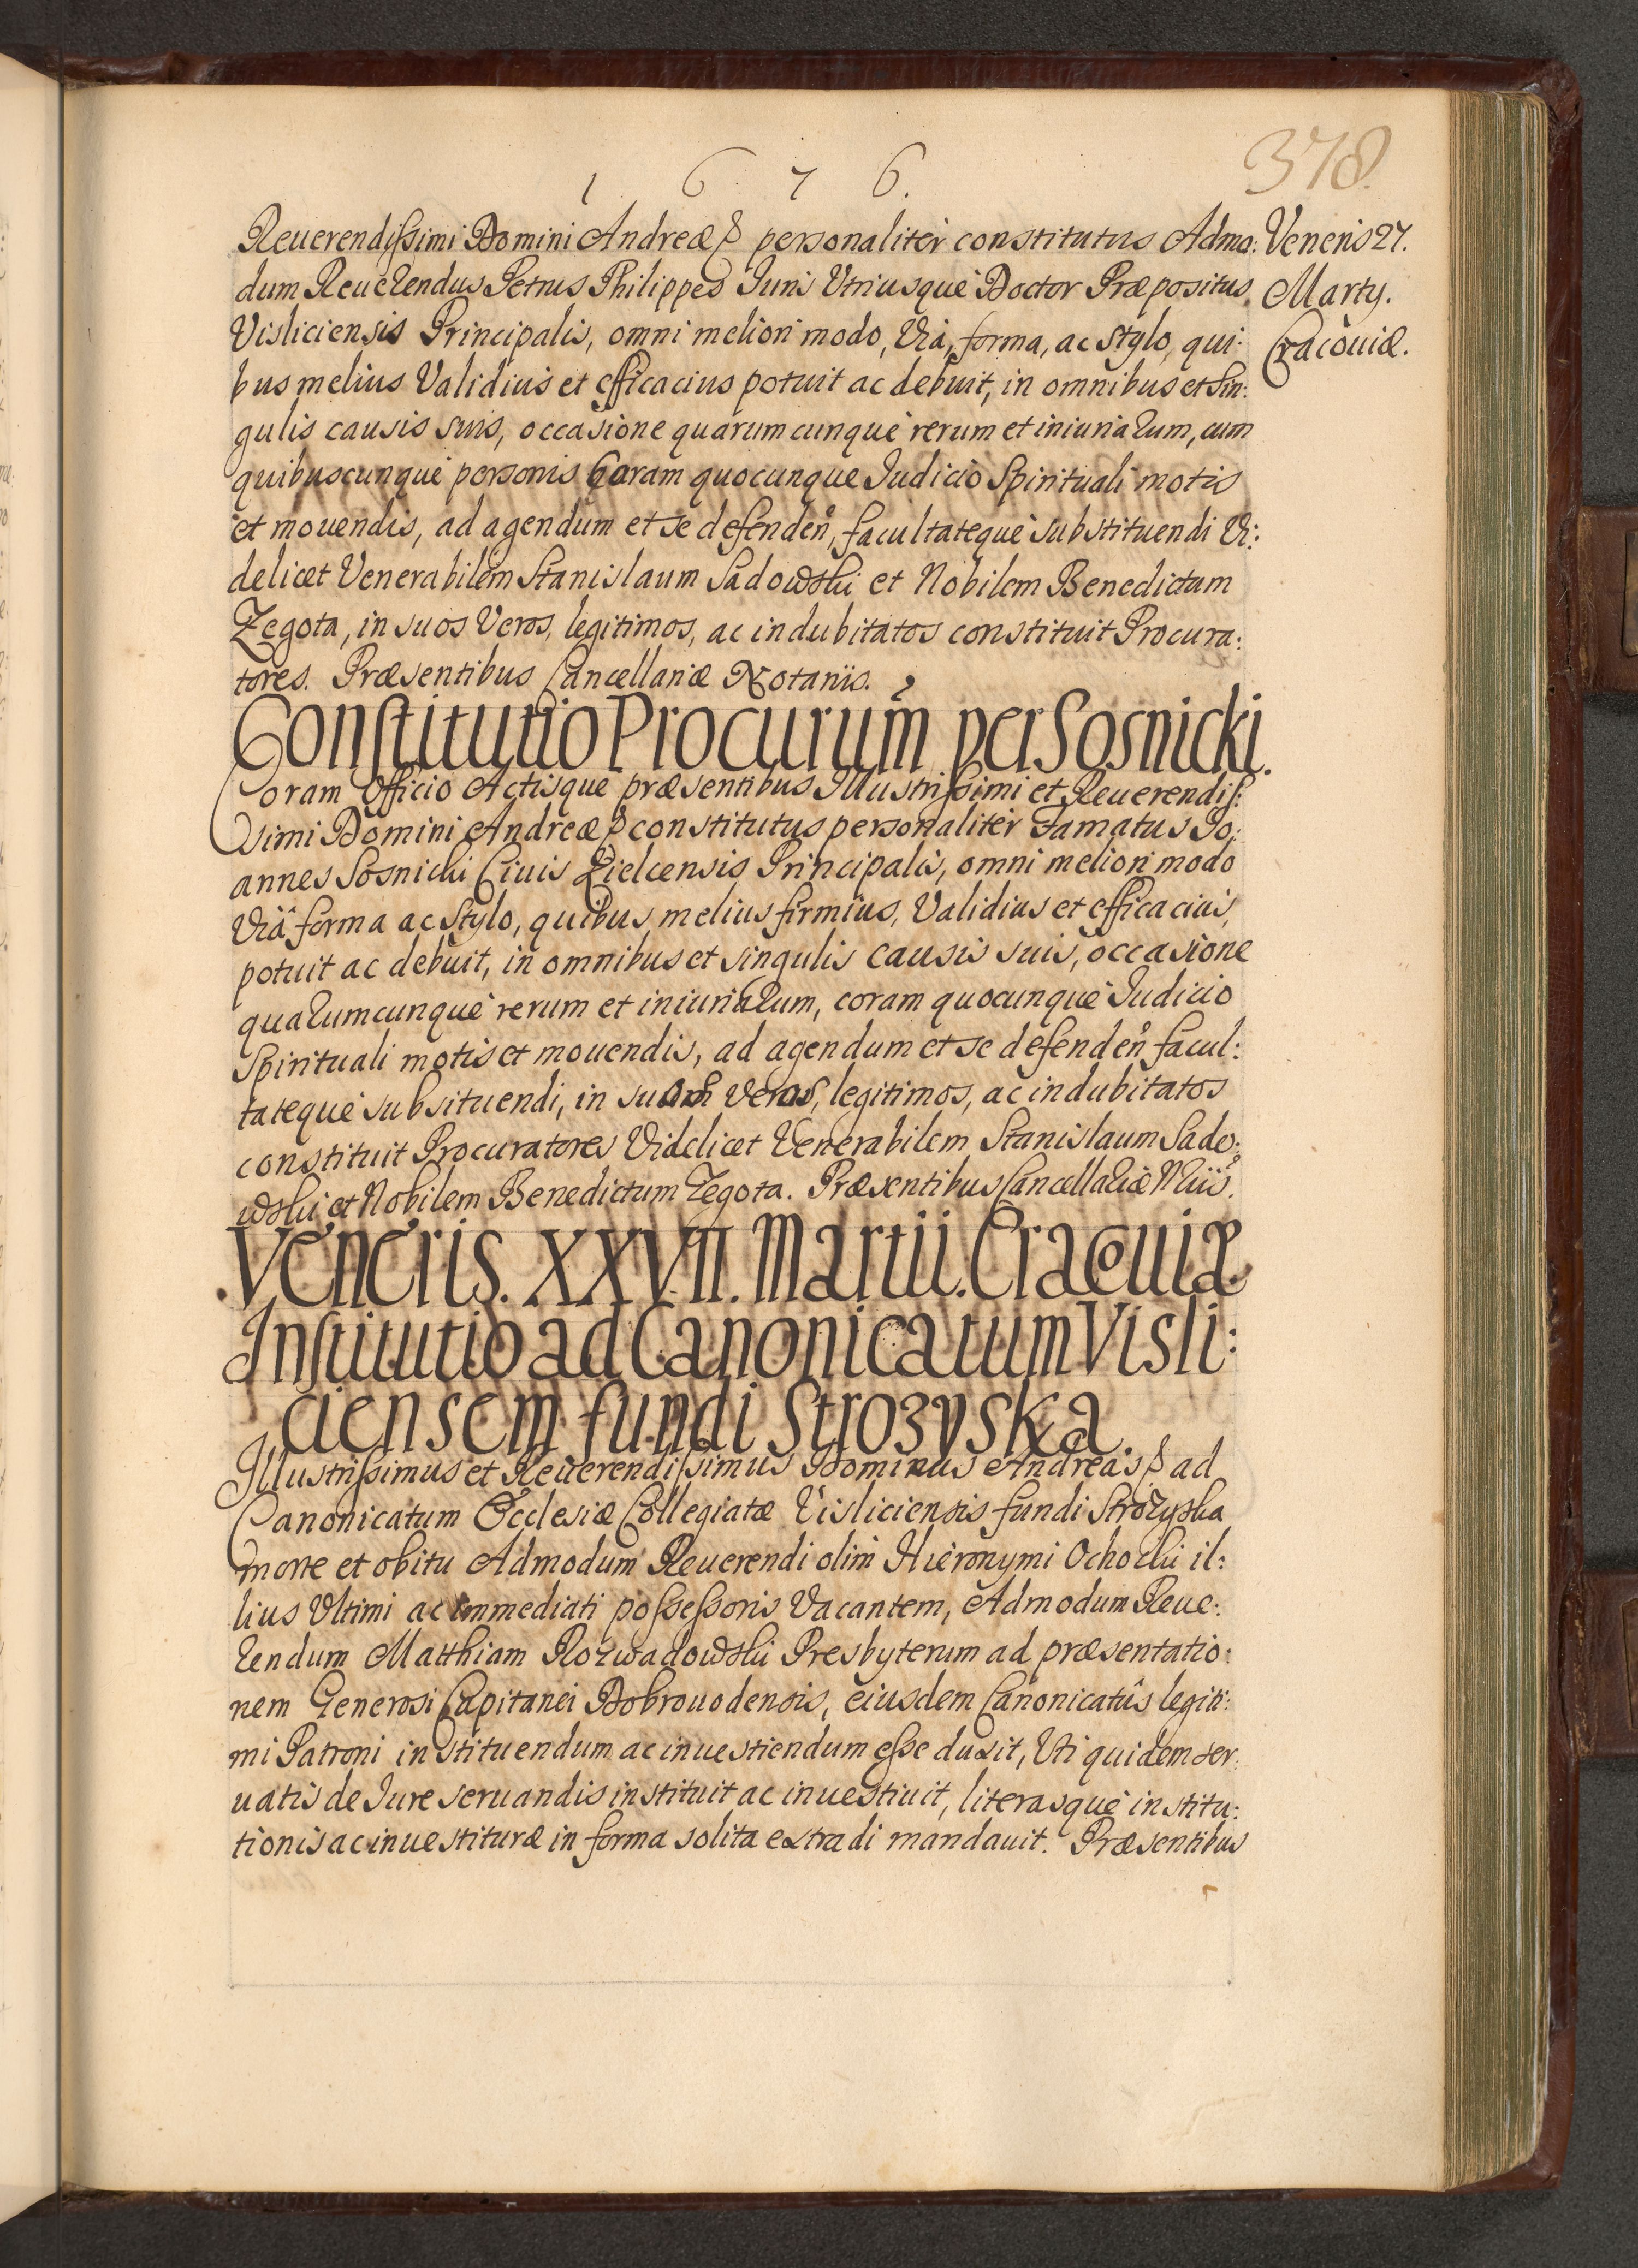 1 6 7 6.
378.
Reuerendissimi Domini Andreæ personaliter constitutus Admo:
dum Reuerendus Petrus Philippes Juris Utriusque Doctor Præpositus
Visliciensis Principalis, omni meliori modo, Via, forma, ac stylo, qui:
bus melius Validius et efficacius potuit ac debuit, in omnibus et sin:
gulis causis suis, occasione quarumcunque rerum et iniuriarum, cum
quibuscunque personis Coram quocunque Judicio Spirituali motis
et mouendis, ad agendum et se defenden, facultateque substituendi Vi:
delicet Venerabilem Stanislaum Sadowski et Nobilem Benedictum
Zegota, in suos Veros, legitimos, ac indubitatos constituit Procura:
tores. Præsentibus Cancellariæ Notariis.
Venens 27.
Marty.
Cracouiæ.
Constitutio Procurum per Sosnicki.
Coram Officio Actisque præsentibus Illustrissimi et Reuerendis:
simi Domini Andreæ constitutus personaliter Famatus Jo:
annes Sosnicki Ciuis Kielcensis Principalis, omni meliori modo
Viâ forma ac Stylo, quibus melius firmius, Validius et efficacius,
potuit ac debuit, in omnibus et singulis causis suis, occasione
quarumcunque rerum et iniuriarum, coram quocunque Judicio
Spirituali motis et mouendis, ad agendum et se defenden facul:
tateque subsituendi, in suos Veros, legitimos, ac indubitatos
constituit Procuratores Videlicet Venerabilem Stanislaum Sado:
wski et Nobilem Benedictum Zegota. Præsentibus Cancellariæ Nriis.
Veneris. XXVII. Martii. Cracouiæ
Institutio ad Canonicatum Visli:
ciensem fundi Strozyska.
Illustrissimus et Reuerendissimus Dominus Andreas ad
Canonicatum Ecclesiæ Collegiatæ Visliciensis fundi Strozyska
morte et obitu Admodum Reuerendi olim Hieronymi Ochocki il:
lius Ultimi ac immediati possessoris Vacantem, Admodum Reue:
rendum Matthiam Rozwadowski Presbyterum ad præsentatio:
nem Generosi Capitanei Dobrouodensis, eiusdem Canonicatûs legiti:
mi Patroni instituendum ac inuestiendum esse duxit, Uti quidem ser:
uatis de Jure seruandis instituit ac inuestiuit, literasque institu:
tionis ac inuestituræ in forma solita extradi mandauit. Præsentibus